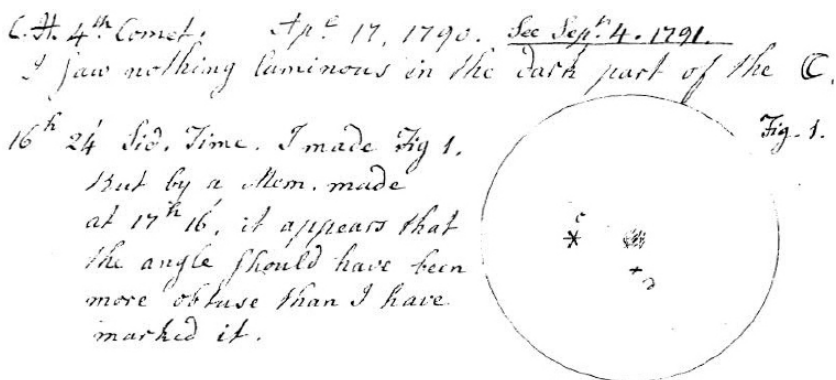 C.H. 4th Comet. Apl 17, 1790. See Sepr. 4. 1791.
I saw nothing luminous in the dark part of the ☾.
16h 24' Sid. Time. I made Fig 1.
But by a Mem. made
at 17h 16', it appears that
the angle should have been
more obtuse than I have
marked it.
Fig. 1.
c